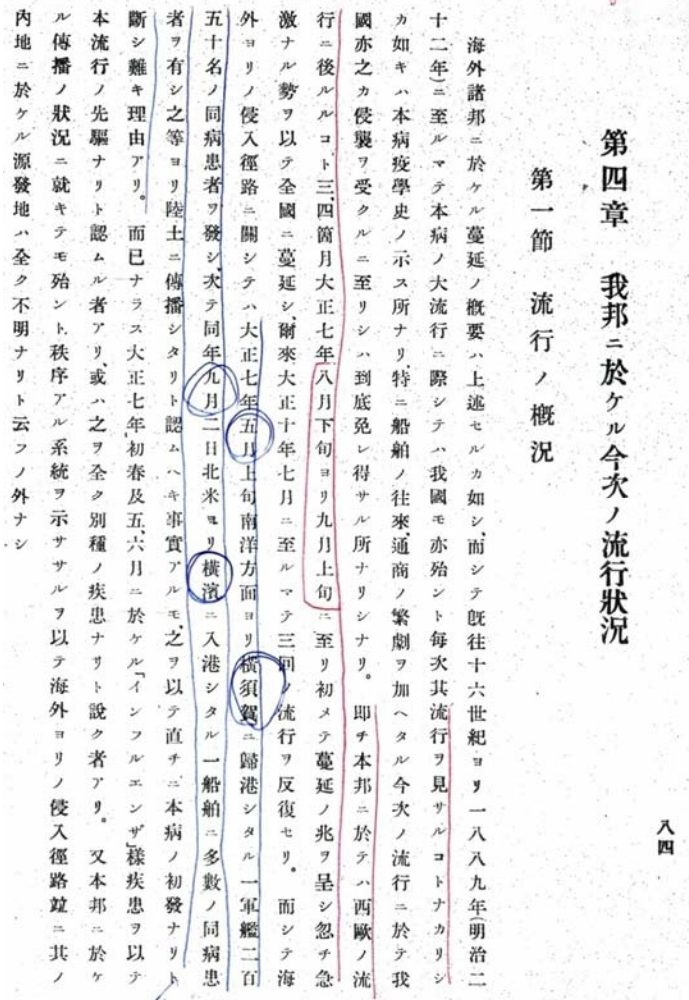 八四
第四章 我邦ニ於ケル今次ノ流行狀況
第一節 流行ノ槪況
海外諸邦ニ於ケル蔓延ノ槪要ハ上述セルカ如シ、而シテ旣往十六世紀ヨリ一八八九年(明治二
十二年)ニ至ルマテ本病ノ大流行ニ際シテハ我國モ亦殆ント每次其流行ヲ見サルコトナカリシ
カ如キハ本病疫學史ノ示ス所ナリ、特ニ船舶ノ往來、通商ノ繁劇ヲ加ヘタル今次ノ流行ニ於テ我
國亦之カ侵襲ヲ受クルニ至リシハ到底免レ得サル所ナリシナリ。卽チ本邦ニ於テハ西歐ノ流
行ニ後ルルコト三、四箇月大正七年八月下旬ヨリ九月上旬ニ至リ初メテ蔓延ノ兆ヲ呈シ忽チ急
激ナル勢ヲ以テ全國ニ蔓延シ、爾來大正十年七月ニ至ルマテ三回ノ流行ヲ反復セリ。而シテ海
外ヨリノ侵入徑路ニ關シテハ大正七年五月上旬南洋方面ヨリ橫須賀ニ歸港シタル一軍艦二百
五十名ノ同病患者ヲ發シ、次テ同年九月二日北米ヨリ橫濱ニ入港シタル一船舶ニ多數ノ同病患
者ヲ有シ之等ヨリ陸土ニ傳播シタリト認ムヘキ事實アルモ、之ヲ以テ直チニ本病ノ初發ナリト
斷シ難キ理由アリ。而已ナラス大正七年初春及五、六月ニ於ケル「インフルエンザ」樣疾患ヲ以テ
本流行ノ先驅ナリト認ムル者アリ、或ハ之ヲ全ク別種ノ疾患ナリト說ク者アリ。又本邦ニ於ケ
ル傳播ノ狀況ニ就キテモ殆ント秩序アル系統ヲ示ササルヲ以テ海外ヨリノ侵入徑路竝ニ其ノ
內地ニ於ケル源發地ハ全ク不明ナリト云フノ外ナシ